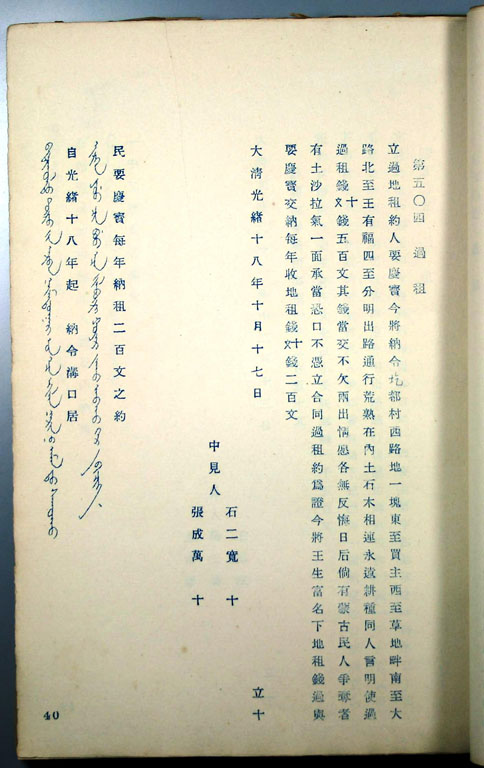 第五〇四 過租
立過地租約人要慶賓今將納令圪都村西路地一塊東至買主西至草地畔南至大
路北至王有福四至分明出路通行荒熟在內土石木相連永遠耕種同人言明使過
過租錢 十 錢五百文其錢當交不欠兩出情愿各無反悔日后倘有蒙古民人爭奪者
有土沙拉氣一面承當恐口不憑立合同過租約為證今將王生富名下地租錢過與
要慶賓交納每年收地租錢 十 錢二百文
大清光緒十八年十月十七日 立十
中見人
石二寬 十
張成萬 十
民要慶賓每年納租二百文之約
自光緒十八年起 納令溝口居
40